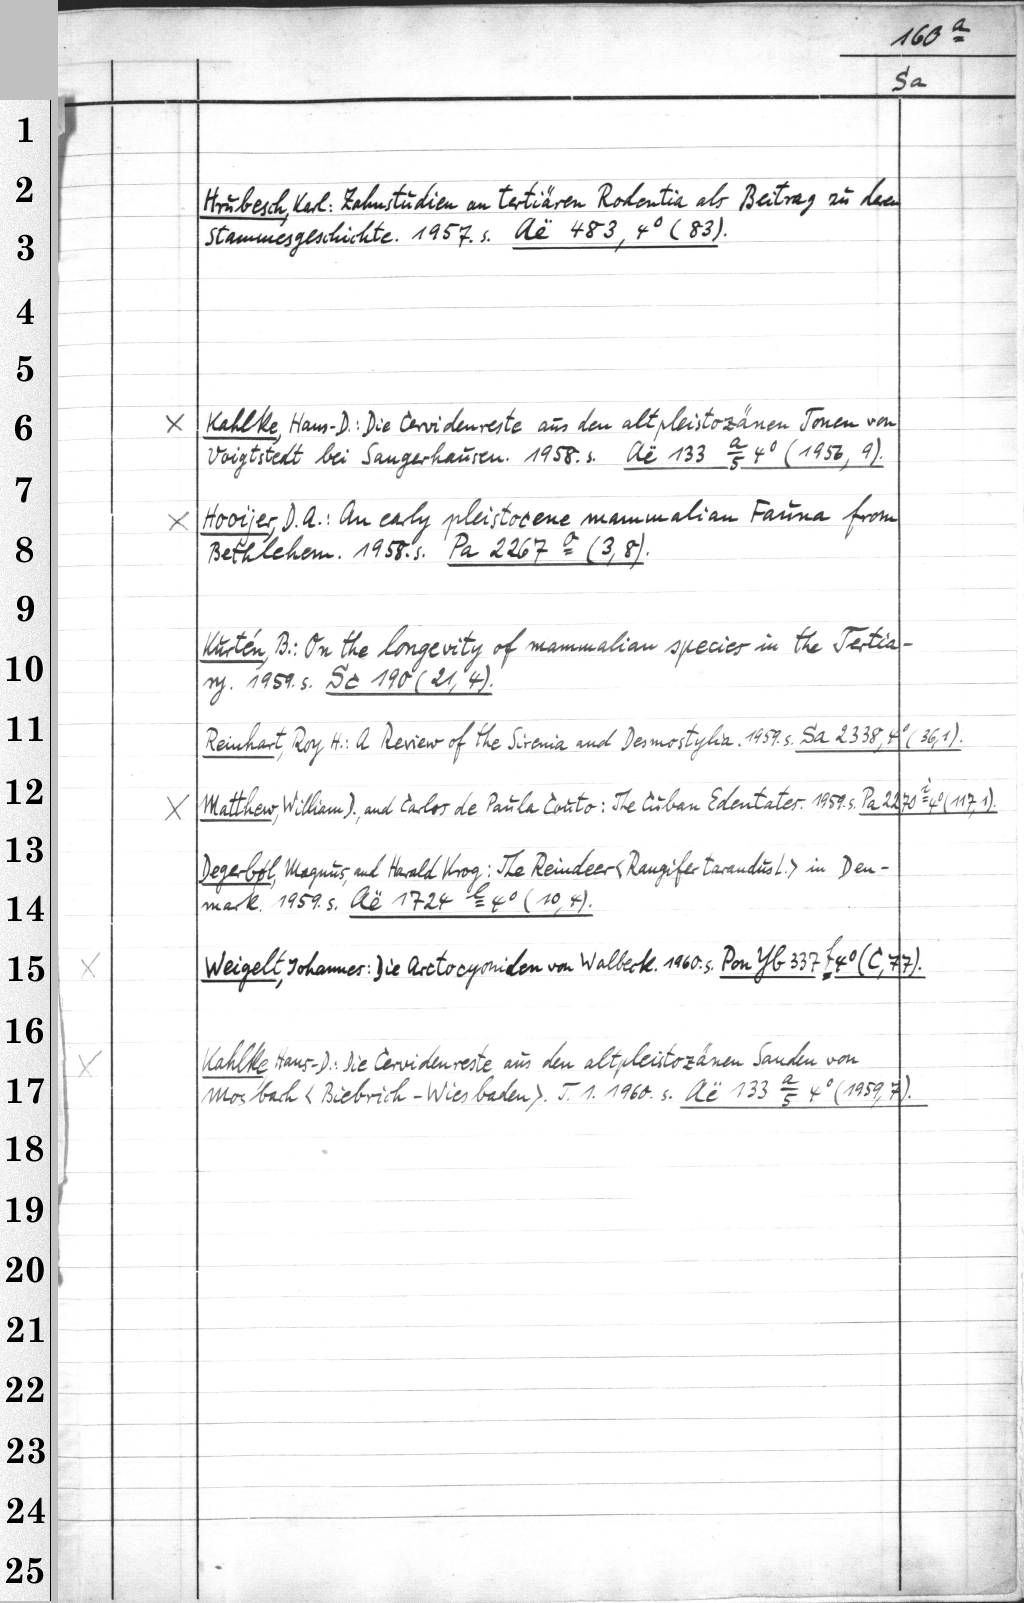 160 a
Sa
1
2
Hrubesch, Karl: Zahnstudien an tertiären Rodentia als Beitrag zu deren
3
Stammesgeschichte. 1957. s. Aë 483, 4° (83).
4
5
6
× Kahlke, Hans-D.: Die Cervidenreste aus den altpleistozänen Tonen von
Voigtstedt bei Sangerhausen. 1958. s. Aë 133 a/5 4° (1956, 9).
7
× Hooijer, D.A.: An early pleistocene mammalian Fauna from
8
Bethlehem. 1958. s. Pa 2267 a (3,8).
9
Kurtén, B.: On the longevity of mammalian species in the Tertia-
10
ry. 1959. s. Sc 190 (21, 4).
11
Reinhart, Roy H.: A Review of the Sirenia and Desmostylia. 1959. s. Sa 2338, 4° (36,1).
12
× Matthew, William D., and Carlos de Paula Couto: The Cuban Edentates. 1959. s. Pa 2270 4° (117, 1).
13
Degerbøl, Magnus, and Harald Krog: The Reindeer <Rangifer tarandus L.> in Den-
14
mark. 1959. s. Aë 1724 b 4° (10, 4).
15
× Weigelt, Johannes: Die Arctocyoniden von Walbeck. 1960. s. Pon Yb 337 f 4° (C, 77).
16
× Kahlke, Hans-D.: Die Cervidenreste aus den altpleistozänen Sanden von
17
Mosbach <Biebrich-Wiesbaden>. T. 1. 1960. s. Aë 133 a/5 4° (1959, 7).
18
19
20
21
22
23
24
25